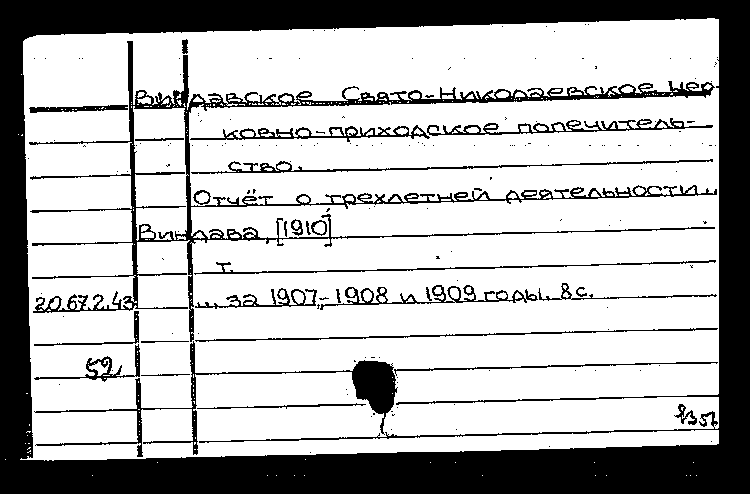 Виндавское Свято-Николаевское цер-
ковно-приходское попечитель-
ство.
Отчёт о трехлетней деятельности...
Виндава, [1910]
т.
20.67.2.43 ... за 1907,-1908 и 1909 годы. 8 с.
52